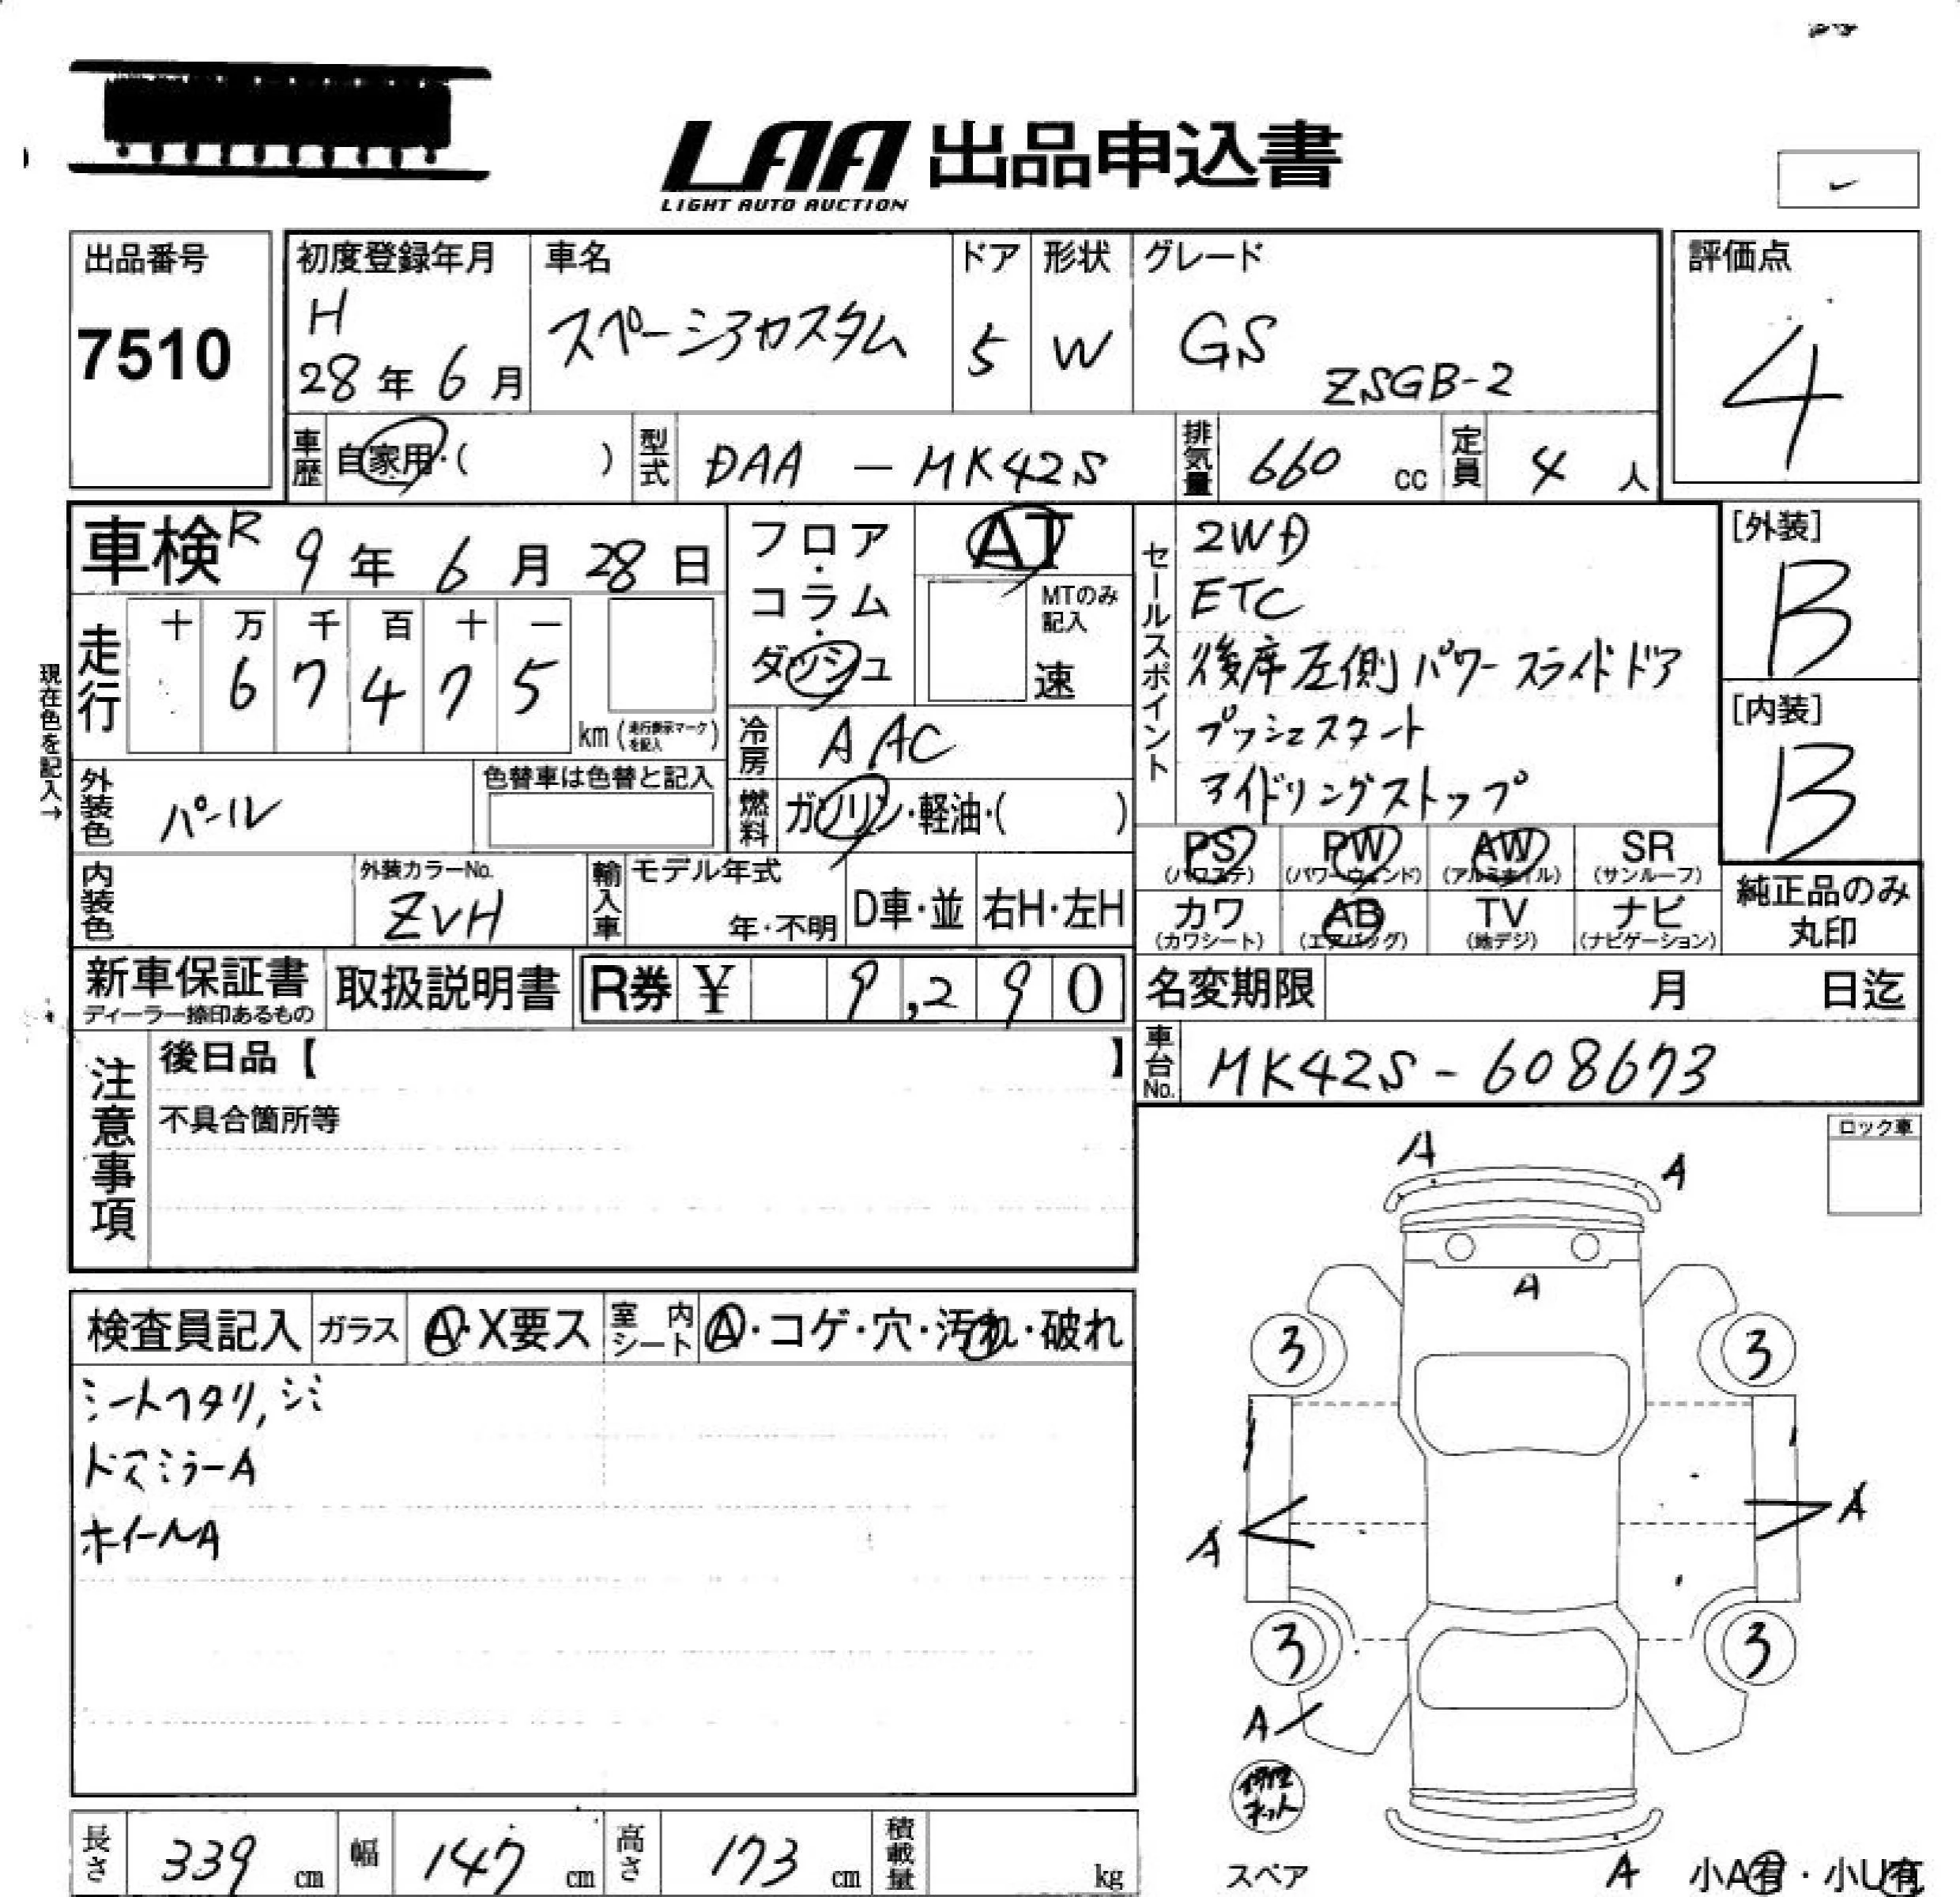 LAA 出品申込書
LIGHT AUTO AUCTION
出品番号
7510
初度登録年月
H
28年6月
車名
スペーシアカスタム
ドア
5
形状
W
グレード
GS
ZSGB-2
評価点
4
車歴
自家用・( )
型式
DAA - MK42S
排気量
660 cc
定員
4 人
車検 R 9年6月28日
走行
十 万 千 百 十 一
6 7 4 7 5
km (走行表示マークを記入)
現在色を記入→
フロア・コラム・ダッシュ
AT
MTのみ記入
速
冷房
AAC
燃料
ガソリン・軽油・( )
外装色
パール
色替車は色替と記入
内装色
外装カラーNo.
ZVH
輸入車
モデル年式
年・不明
D車・並
右H・左H
セールスポイント
2WD
ETC
後席左側パワースライドドア
プッシュスタート
アイドリングストップ
[外装]
B
[内装]
B
PS (パワステ)
PW (パワーウィンド)
AW (アルミホイル)
SR (サンルーフ)
カワ (カワシート)
AB (エアバッグ)
TV (地デジ)
ナビ (ナビゲーション)
純正品のみ丸印
新車保証書
ディーラー捺印あるもの
取扱説明書
R券 ¥ 9,290
名変期限
月 日迄
車台No.
MK42S-608673
注意事項
後日品【 】
不具合箇所等
ロック車
検査員記入
ガラス
A・X要ス
室内シート
A・コゲ・穴・汚れ・破れ
シートヘタリ,シミ
ドアミラーA
ホイールA
A
A
A
3
3
A
A
3
3
A
スペア
A
小A有・小U有
長さ
339 cm
幅
147 cm
高さ
173 cm
積載量
kg